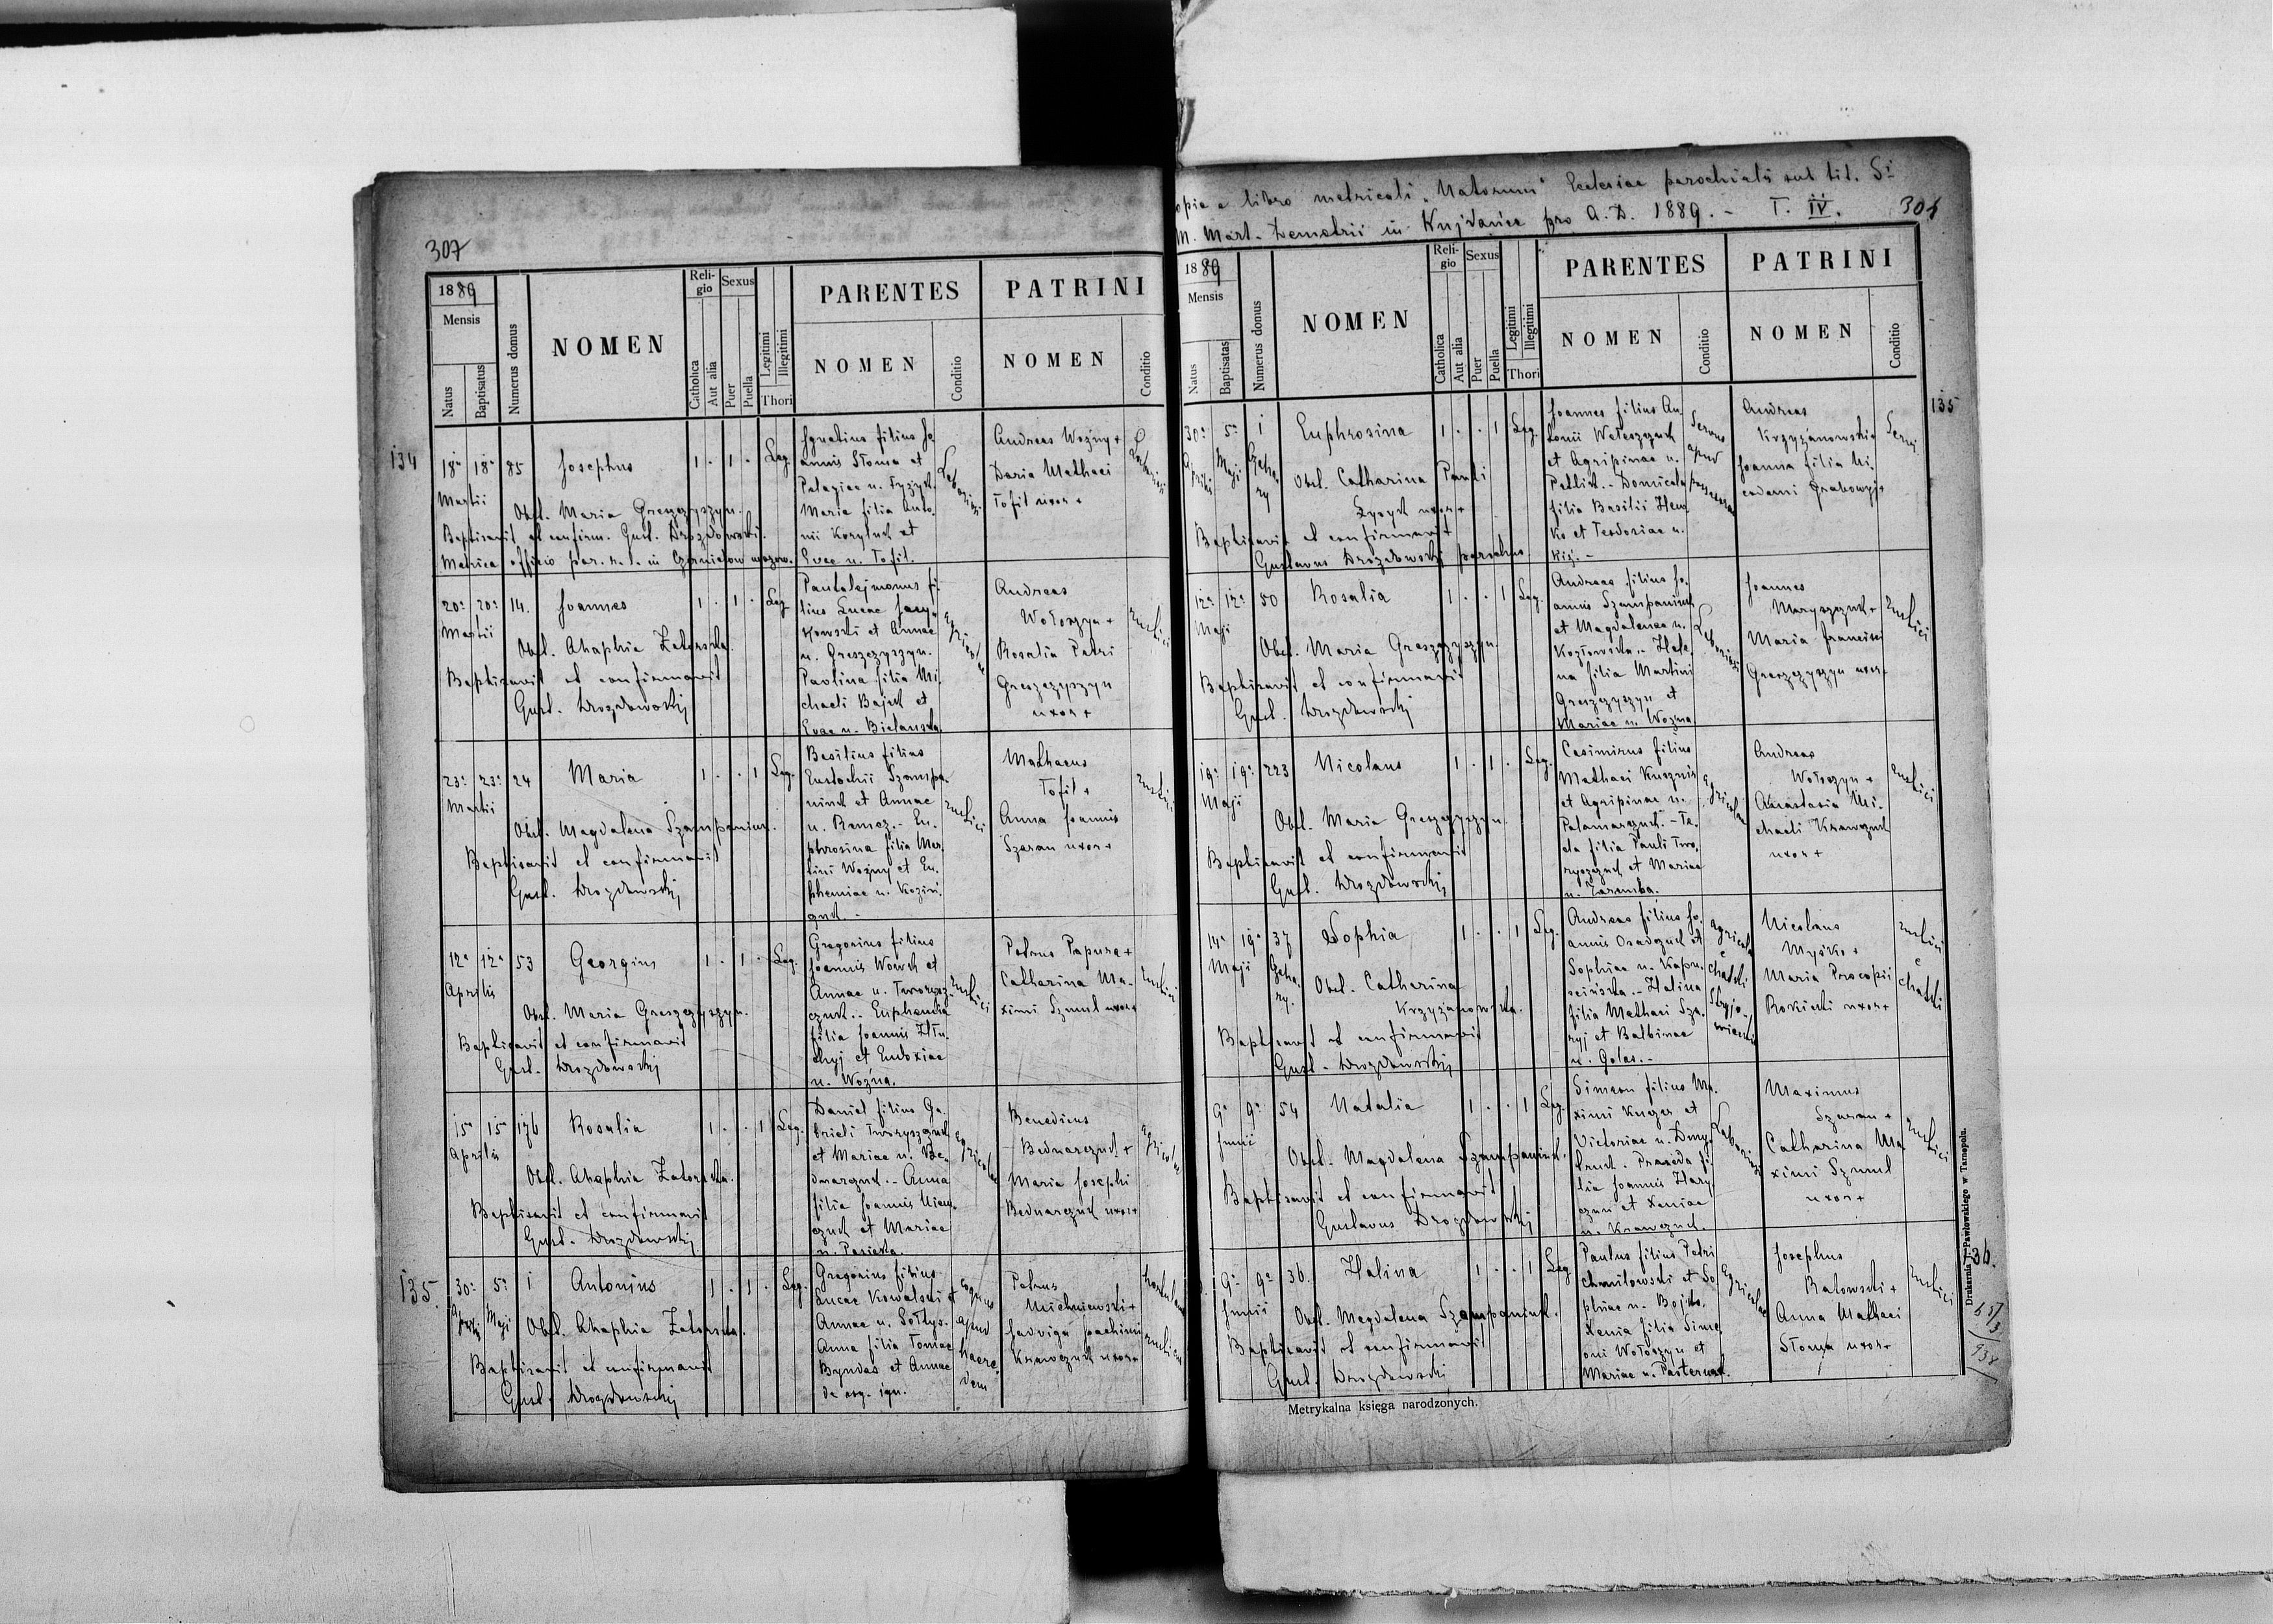 307
1889
Mensis
Natus
Baptisatus
Numerus domus
NOMEN
Religio
Catholica
Aut alia
Sexus
Puer
Puella
Legitimi
Illegitimi
Thori
PARENTES
NOMEN
Conditio
PATRINI
NOMEN
Conditio
134
18a 18a 85 Josephus 1 . 1 . Leg.
Martii
Obst. Maria Greszczyszyn.
Baptisavit et confirm. Gust. Drozdowski.
Matrica officio par. r. l. in
Ignatius filius Jo
annis Słoma et
Pelagiae n.
Maria filia Anto
nii Koryluk et
Evae n. Tofil.
Andreas Woźny +
Daria Mathaei
Tofil uxor +
20a 20a 14. Joannes 1 . 1 . Leg
Martii
Obst. Ahaphia Zatorska.
Baptisavit et confirmavit
Gust. Drozdowskij
Pantalejmonus fi
lius Lucae Jasy
kowski et Annae
n. Greszczyszyn.
Paulina filia Mi
chaeli Bajuk et
Evae n. Bielanska.
Agricolae
Andreas
Wołoszyn +
Rosalia Petri
Greszczyszyn
uxor +
rustici
23a 23a 24 Maria 1 . . 1 Leg.
Martii
Obst. Magdalena Szampaniuk.
Baptisavit et confirmavit
Gust. Drozdowskij
Basilius filius
Eustachii Szampa
niuk et Annae
n. Remez. - Eu
phrosina filia Mar
tini Woźny et Eu
phemiae n. Kozini
czuk. -
rustici
Mathaeus
Tofil +
Anna Joannis
Szaran uxor +
rustici
12a 12a 53 Georgius 1 . 1 . Leg.
Aprilis
Obst. Maria Greszczyszyn.
Baptisavit et confirmavit
Gust. Drozdowskij
Gregorius filius
Joannis Wowk et
Annae n. Tworysz
czuk. - Euphemia
filia Joannis Hłu
chyj et Eudoxiae
n. Woźna.
rustici
Petrus Papura +
Catharina Ma
ximi Szmul uxor +
rustici
15a 15a 176 Rosalia 1 . . 1 Leg.
Aprilis
Obst. Ahaphia Zatorska.
Baptisavit et confirmavit
Gust. Drozdowskij
Daniel filius Ga
brieli Tworyszczuk
et Mariae n. Be
dnarczuk. - Anna
filia Joannis
czuk et Mariae
n. Pasieka.
Agricolae
Benedicus
Bednarczuk +
Maria Josephi
Bednarczuk uxor +
Agricolae
135.
30a 5a 1 Antonius 1 . 1 . Leg.
Aprilis Maji
Obst. Ahaphia Zatorska.
Baptisavit et confirmavit
Gust. Drozdowskij
Gregorius filius
Lucae Kowalski et
Annae n. Sołtys.
Anna filia Tomae
Byndas et Annae
de cog. ign.
apud
Petrus
Michniewski +
Jadviga Joachimi
Krawczuk uxor +
Copia e libro metricali "Natorum" Ecclesiae parochialis sub tit. Si
M. Mart. Demetrii in Kujdańce pro A. D. 1889. - T. IV.
1889
Mensis
Natus
Baptisatas
Numerus domus
NOMEN
Religio
Catholica
Aut alia
Sexus
Puer
Puella
Legitimi
Illegitimi
Thori
PARENTES
NOMEN
Conditio
PATRINI
NOMEN
Conditio
135
30a 5a 1 Euphrosina 1 . . 1 Leg.
Aprilis Maji
Obst. Catharina Pauli
Łysyck uxor +
Baptisavit et confirmavit
Gustavus Drozdowskij parochus
Joannes filius An
tonii Weleszczuk
et Agripinae n.
Domicela
filia Basilii Hew
ko et Teodosiae n.
Kiż. -
Servus
apud
Andreas
Krzyżanowski +
Joanna filia Ni
codemi Grabowyj +
Servi
12a 12a 50 Rosalia 1 . . 1 Leg.
Maji
Obst. Maria Greszczyszyn.
Baptisavit et confirmavit
Gust. Drozdowskij
Andreas filius Jo
annis Szampaniuk
et Magdalenae n.
Kozłowska. - Hele
na filia Martini
Greszczyszyn et
Mariae n. Wozna
Joannes
Maryszczuk +
Maria Francisci
Greszczyszyn uxor +
rustici
19a 19a 223 Nicolaus 1 . 1 . Leg.
Maji
Obst. Maria Greszczyszyn
Baptisavit et confirmavit
Gust. Drozdowskij
Casimirus filius
Mathaei Kusznir
et Agripinae n.
Palamarczuk. - Te
cla filia Pauli Two
ryszczuk et Mariae
n. Zaremba.
Agricolae
Andreas
Wołoszyn +
Anastasia Mi
chaeli Krawczuk
uxor +
rustici
14a 19a 37 Sophia 1 . . 1 Leg.
Maji
Obst. Catharina
Krzyżanowska.
Baptisavit et confirmavit
Gust. Drozdowskij
Andreas filius Jo
annis Osadczuk et
Sophiae n. Kapu
scińska. - Halina
filia Mathaei Sza
ryj et Balbinae
n. Golas. -
Agricolae
e
Chatki
Nicolaus
Myśko +
Maria Procopii
Rokicki uxor +
rustici
e
Chatki
9a 9a 54 Natalia 1 . . 1 Leg.
Junii
Obst. Magdalena Szampaniuk.
Baptisavit et confirmavit
Gustavus Drozdowskij
Simeon filius Ma
ximi Kuczer et
Victoriae n. Dmy
truk. Praxeda fi
lia Joannis Hary
czun et Xeniae
n. Krawczuk.
Maximus
Szaran +
Catharina Ma
ximi Szmul
uxor +
rustici
9a 9a 36. Halina 1 . . 1 Leg
Junii
Obst. Magdalena Szampaniuk.
Baptisavit et confirmavit
Gust. Drozdowskij
Paulus filius Petri
Chmilowski et So
phiae n. Bojko.
Xenia filia Sime
oni Wołoszyn et
Mariae n. Pasternak.
Agricolae
Josephus
Ratowski +
Anna Mathaei
Słoma uxor +
rustici
Metrykalna księga narodzonych.
Drukarnia J. Pawłowskiego w Tarnopolu.